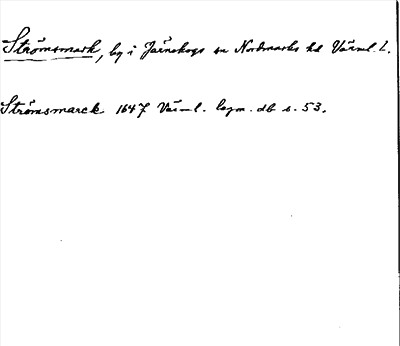 Strömsmark, by i Järnskogs sn Nordmarks hd Värml. L.
Strömsmarck 1647 Värml. lagm. db s. 53.